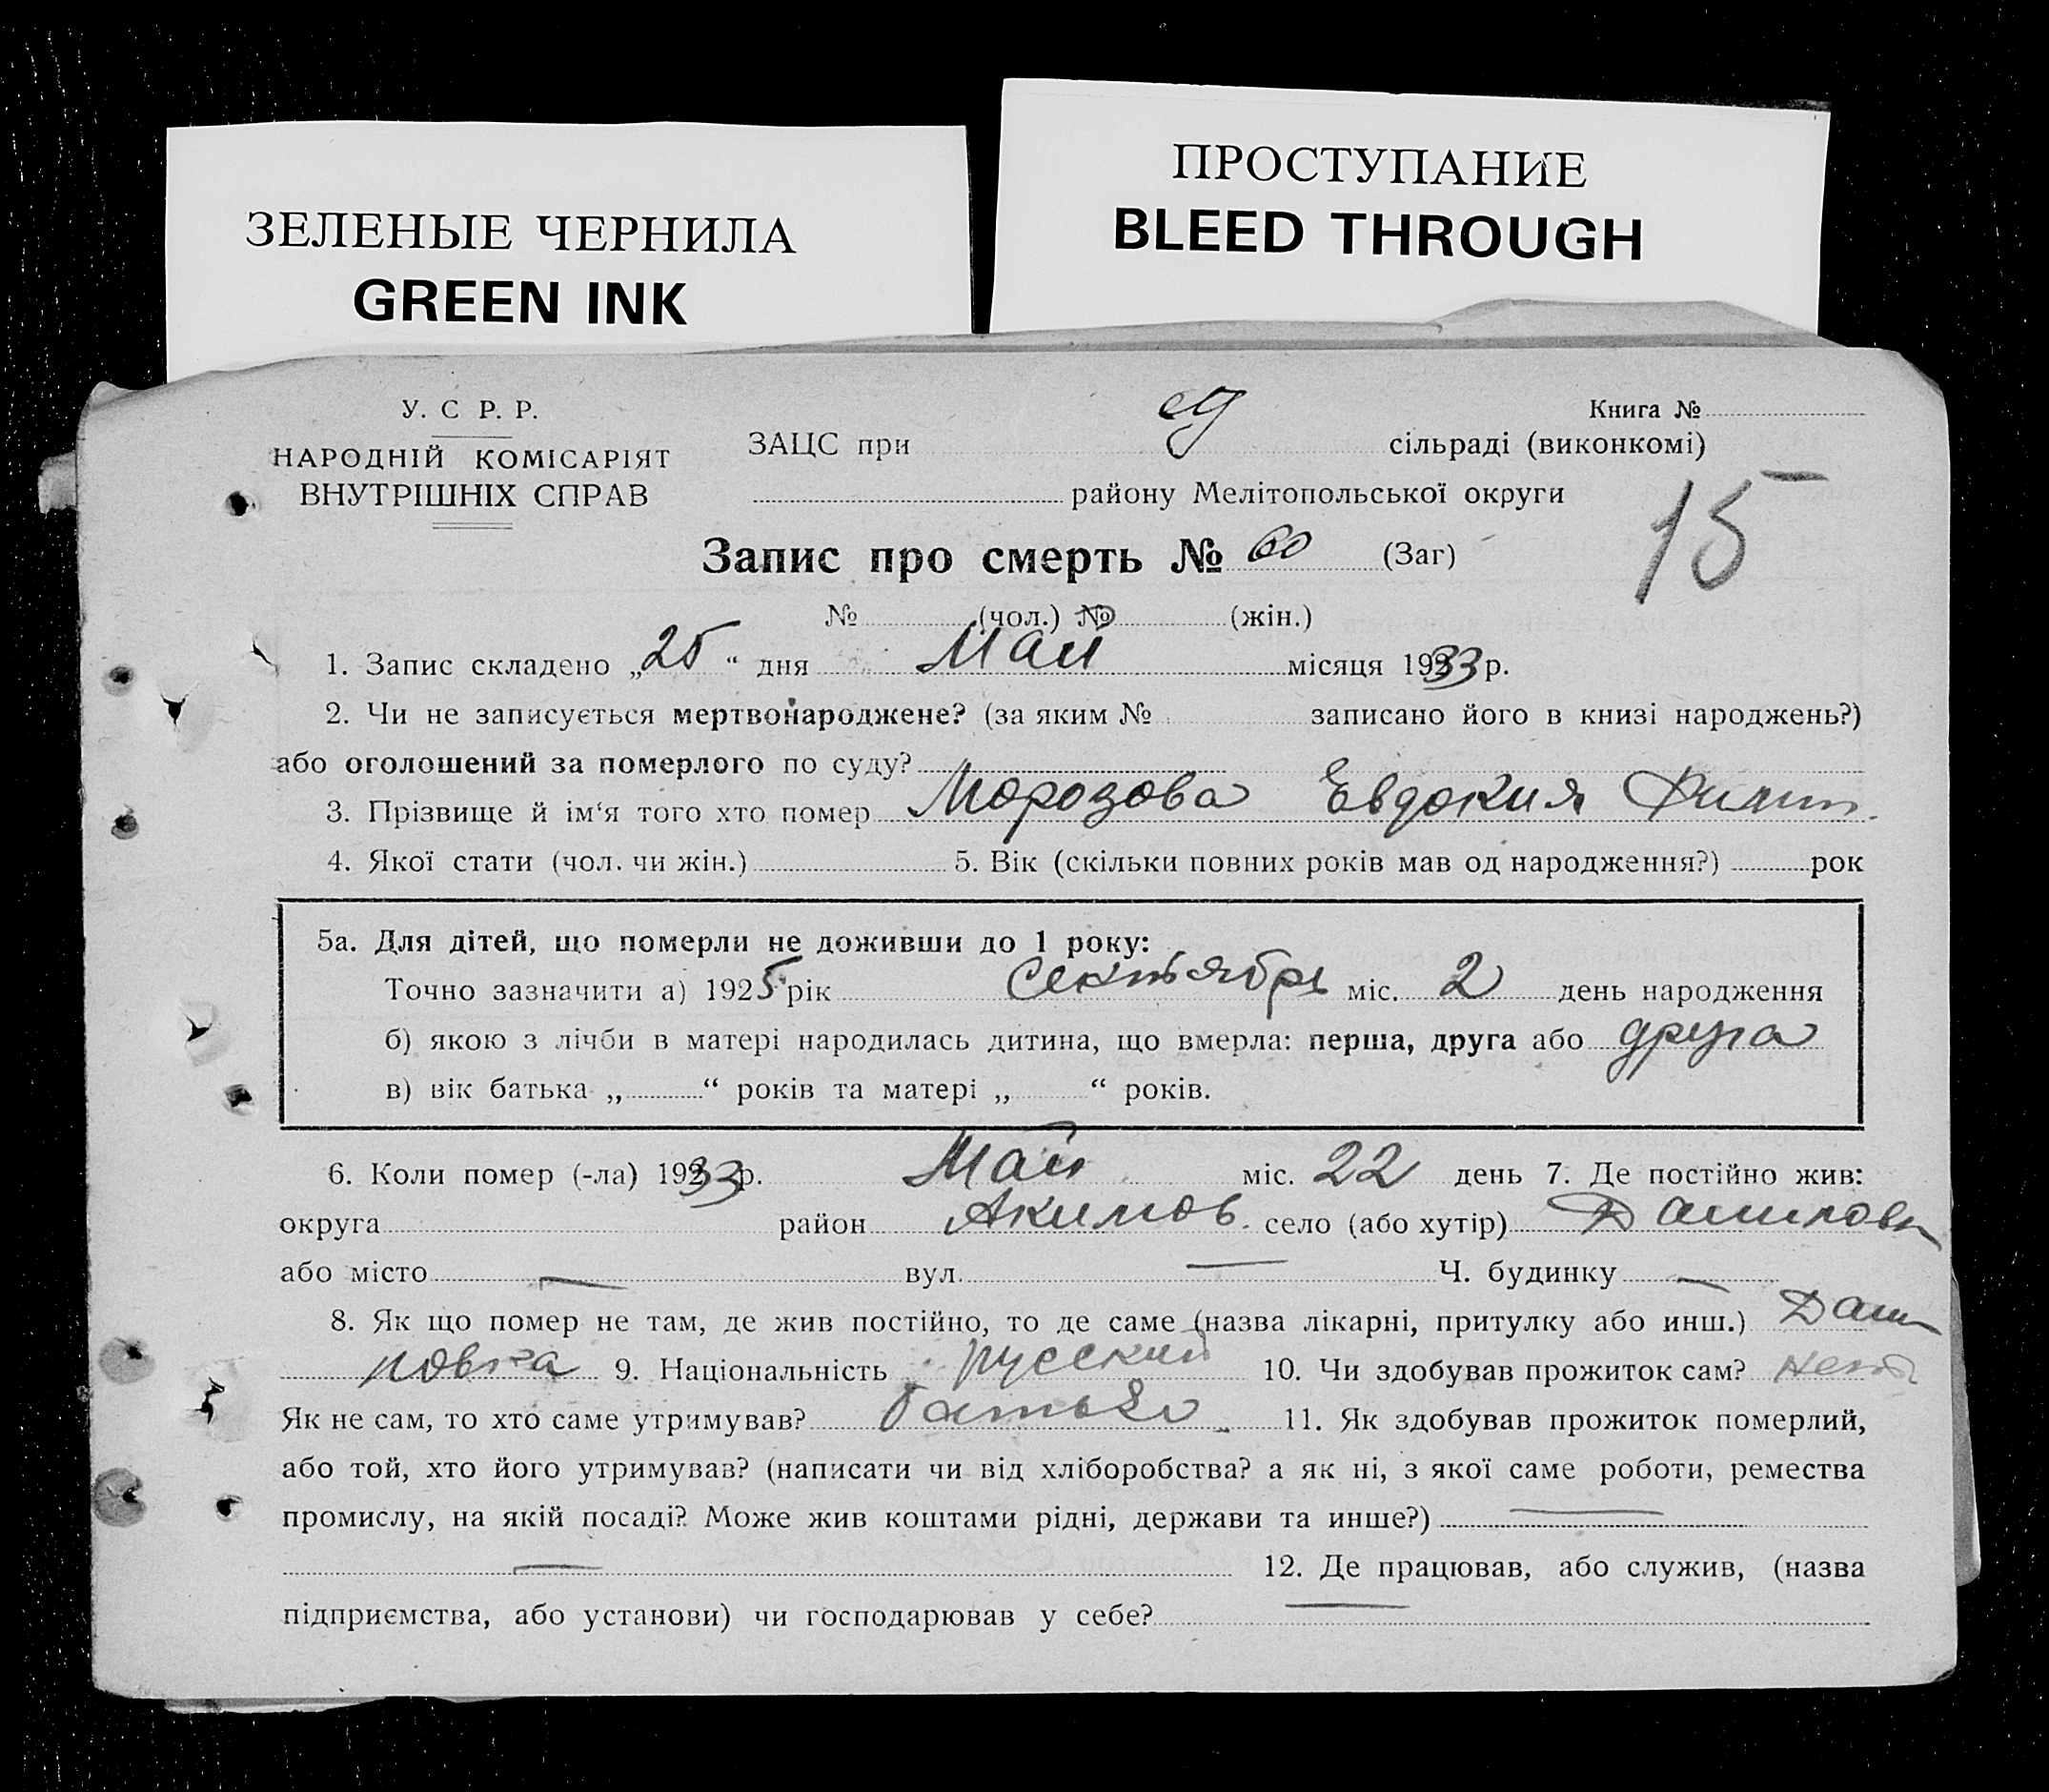 ЗЕЛЕНЫЕ ЧЕРНИЛА
GREEN INK
ПРОСТУПАНИЕ
BLEED THROUGH
У. С Р. Р.
НАРОДНІЙ КОМІСАРІЯТ
ВНУТРІШНІХ СПРАВ
Книга №
ЗАЦС при сільраді (виконкомі)
району Мелітопольської округи
15
Запис про смерть № 60 (Заг)
№ (чол.) № (жін.)
1. Запис складено „25“ дня Май місяця 1933 р.
2. Чи не записується мертвонароджене? (за яким № записано його в книзі народжень?)
або оголошений за померлого по суду?
3. Прізвище й ім‘я того хто помер Морозова Евдокия
4. Якої стати (чол. чи жін.) 5. Вік (скільки повних років мав од народження?) рок
5а. Для дітей, що померли не доживши до 1 року:
Точно зазначити а) 1925 рік Сентябрь міс. 2 день народження
б) якою з лічби в матері народилась дитина, що вмерла: перша, друга або друга
в) вік батька „ “ років та матері „ “ років.
6. Коли помер (-ла) 1933 р. Май міс. 22 день 7. Де постійно жив:
округа район Акимов. село (або хутір)
або місто — вул. — Ч. будинку —
8. Як що помер не там, де жив постійно, то де саме (назва лікарні, притулку або инш.)
9. Національність русский 10. Чи здобував прожиток сам? нет
Як не сам, то хто саме утримував? батько 11. Як здобував прожиток померлий,
або той, хто його утримував? (написати чи від хліборобства? а як ні, з якої саме роботи, ремества
промислу, на якій посаді? Може жив коштами рідні, держави та инше?) —
— 12. Де працював, або служив, (назва
підприємства, або установи) чи господарював у себе? —